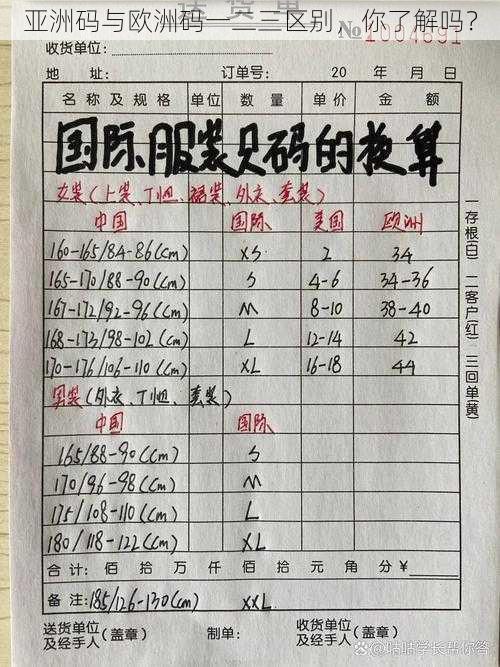 亚洲码与欧洲码一二三区别，你了解吗？
送货单
№1004691
收货单位：
地 址：　订单号：　20　年　月　日
名称及规格　单位　数量　单价　金额
国际服装尺码的换算
女装（上装、T恤、裙装、外衣、套装）
中国　国际　美国　欧洲
160-165/84-86(cm)　XS　2　34
165-170/88-90(cm)　S　4-6　34-36
167-172/92-96(cm)　M　8-10　38-40
168-173/98-102(cm)　L　12-14　42
170-176/106-110(cm)　XL　16-18　44
男装（外衣、T恤、套装）
中国　国际
165/88-90(cm)　S
170/96-98(cm)　M
175/108-110(cm)　L
180/118-122(cm)　XL
合计：　佰　拾　万　仟　佰　拾　元　角　分￥
备注：185/126-130(cm)　XXL
送货单位及经手人（盖章）　制单：　收货单位及经手人（盖章）
一存根(白)　二客户(红)　三回单(黄)